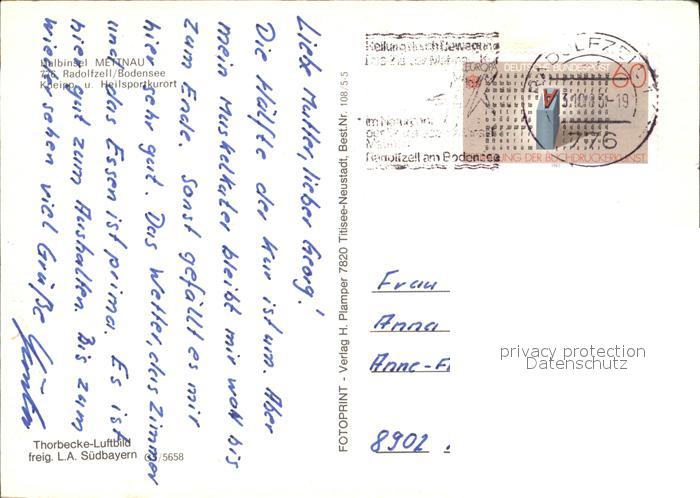 Halbinsel METTNAU
776 Radolfzell/Bodensee
Kneipp u. Heilsportkurort
Liebe Mutter, lieber Georg!
Die Hälfte der Kur ist um. Aber
mein Muskelkater bleibt mir wohl bis
zum Ende. Sonst gefällt es mir
hier sehr gut. Das Wetter, das Zimmer
und das Essen ist prima. Es ist
hier gut zum Aushalten. Bis zum
wieder sehen viel Grüße
Thorbecke-Luftbild
freig. L.A. Südbayern G /5658
FOTOPRINT - Verlag H. Plamper 7820 Titisee-Neustadt, Best.Nr. 108/5-5
Heilung durch Bewegung
Radolfzell am Bodensee
DEUTSCHE BUNDESPOST
60
EUROPA
A
NG DER BUCHDRUCKERKUNST
RADOLFZELL
-19
776
Frau
Anna
Anne-F
8902
privacy protection
Datenschutz